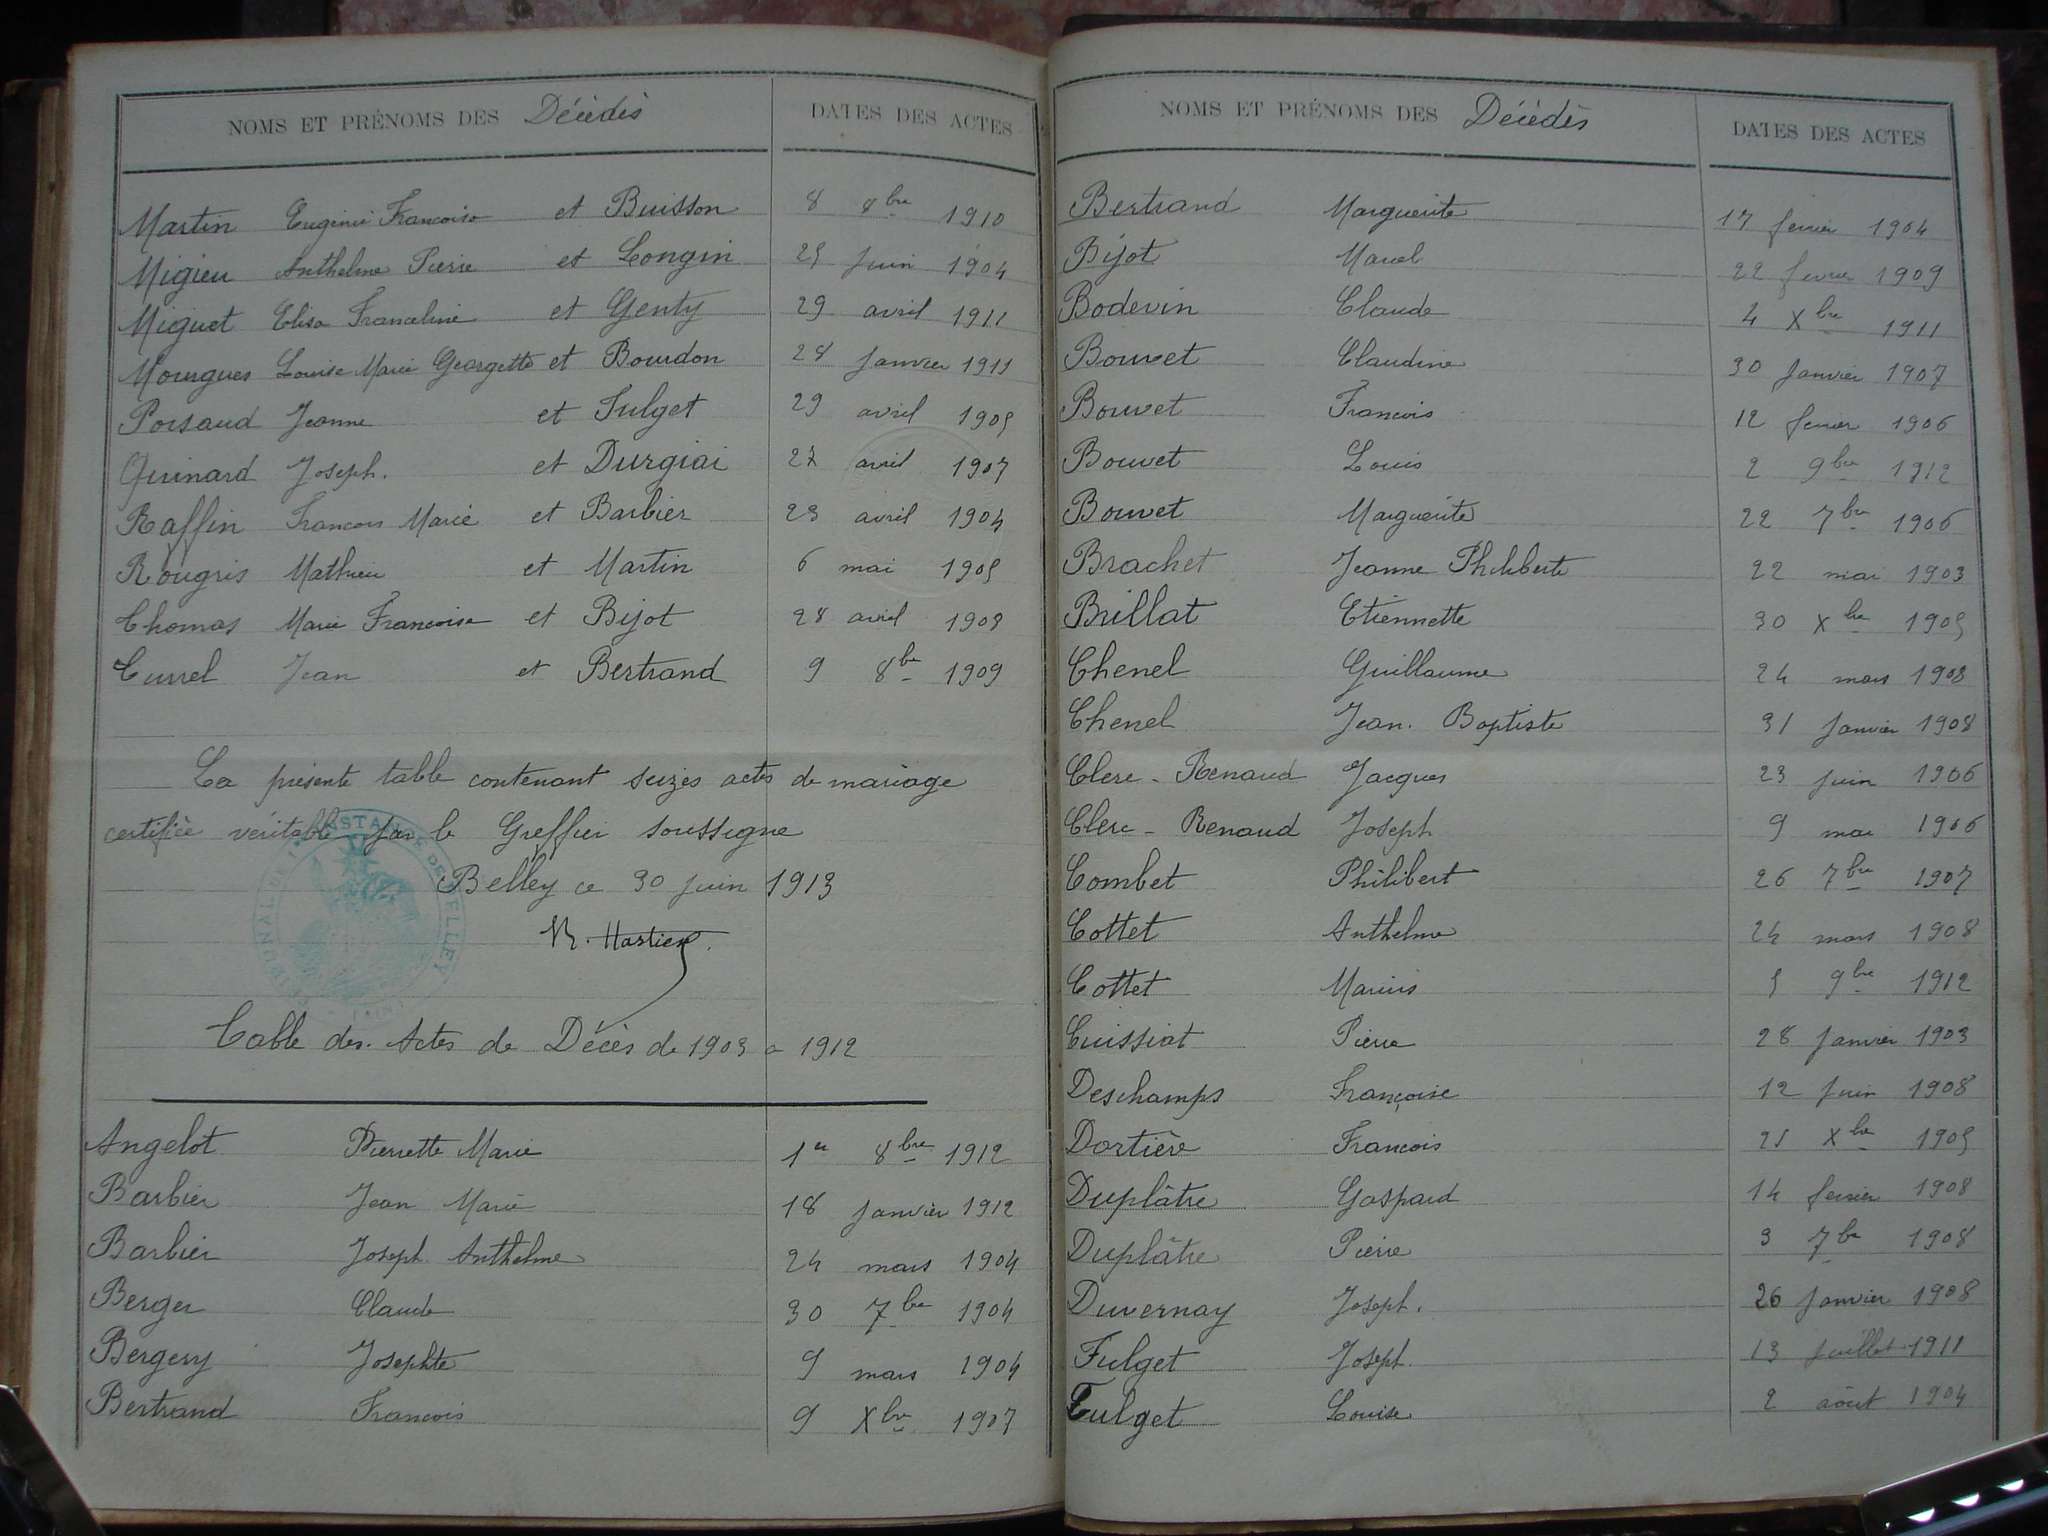 NOMS ET PRÉNOMS DES Décédés DATES DES ACTES
Martin Eugénie Francoise et Buisson 8 8bre 1910
Migieu Anthelme Pierre et Longin 25 juin 1904
Miguet Elisa Franceline et Genty 29 avril 1911
Mourgues Louise Marie Georgette et Bourdon 28 janvier 1911
Porsaud Jeanne et Fulget 29 avril 1905
Quinard Joseph. et Durgiai 27 avril 1907
Raffin Francois Marie et Barbier 23 avril 1904
Rougris Mathieu et Martin 6 mai 1905
Thomas Marie Francoise et Bijot 28 avril 1908
Turrel Jean et Bertrand 9 8bre 1909
La présente table contenant seizes actes de mariage
certifiée véritable par le Greffier soussigné
Belley ce 30 juin 1913
Table des Actes de Décès de 1903 a 1912
Angelot Pierrette Marie 1er 8bre 1912
Barbier Jean Marie 18 janvier 1912
Barbier Joseph Anthelme 24 mars 1904
Berger Claude 30 7bre 1904
Bergery Josephte 9 mars 1904
Bertrand Francois 9 Xbre 1907
NOMS ET PRÉNOMS DES Décédés DATES DES ACTES
Bertrand Marguerite 17 fevrier 1904
Bijot Marcel 22 fevrier 1909
Bodevin Claude 4 Xbre 1911
Bouvet Claudine 30 janvier 1907
Bouvet Francois 12 fevrier 1906
Bouvet Louis 2 9bre 1912
Bouvet Marguerite 22 7bre 1906
Brachet Jeanne Philiberte 22 mai 1903
Brillat Etiennette 30 Xbre 1905
Chenel Guillaume 24 mars 1908
Chenel Jean. Baptiste 31 janvier 1908
Clerc - Renaud Jacques 23 juin 1906
Clerc - Renaud Joseph 9 mai 1906
Combet Philibert 26 7bre 1907
Cottet Anthelme 24 mars 1908
Cottet Marius 5 9bre 1912
Cuissiat Pierre 28 janvier 1903
Deschamps Françoise 12 juin 1908
Dortière Francois 25 Xbre 1905
Duplâtre Gaspard 14 fevrier 1908
Duplâtre Pierre 3 7bre 1908
Duvernay Joseph. 26 janvier 1908
Fulget Joseph. 13 juillet 1911
Fulget Louise 2 août 1904